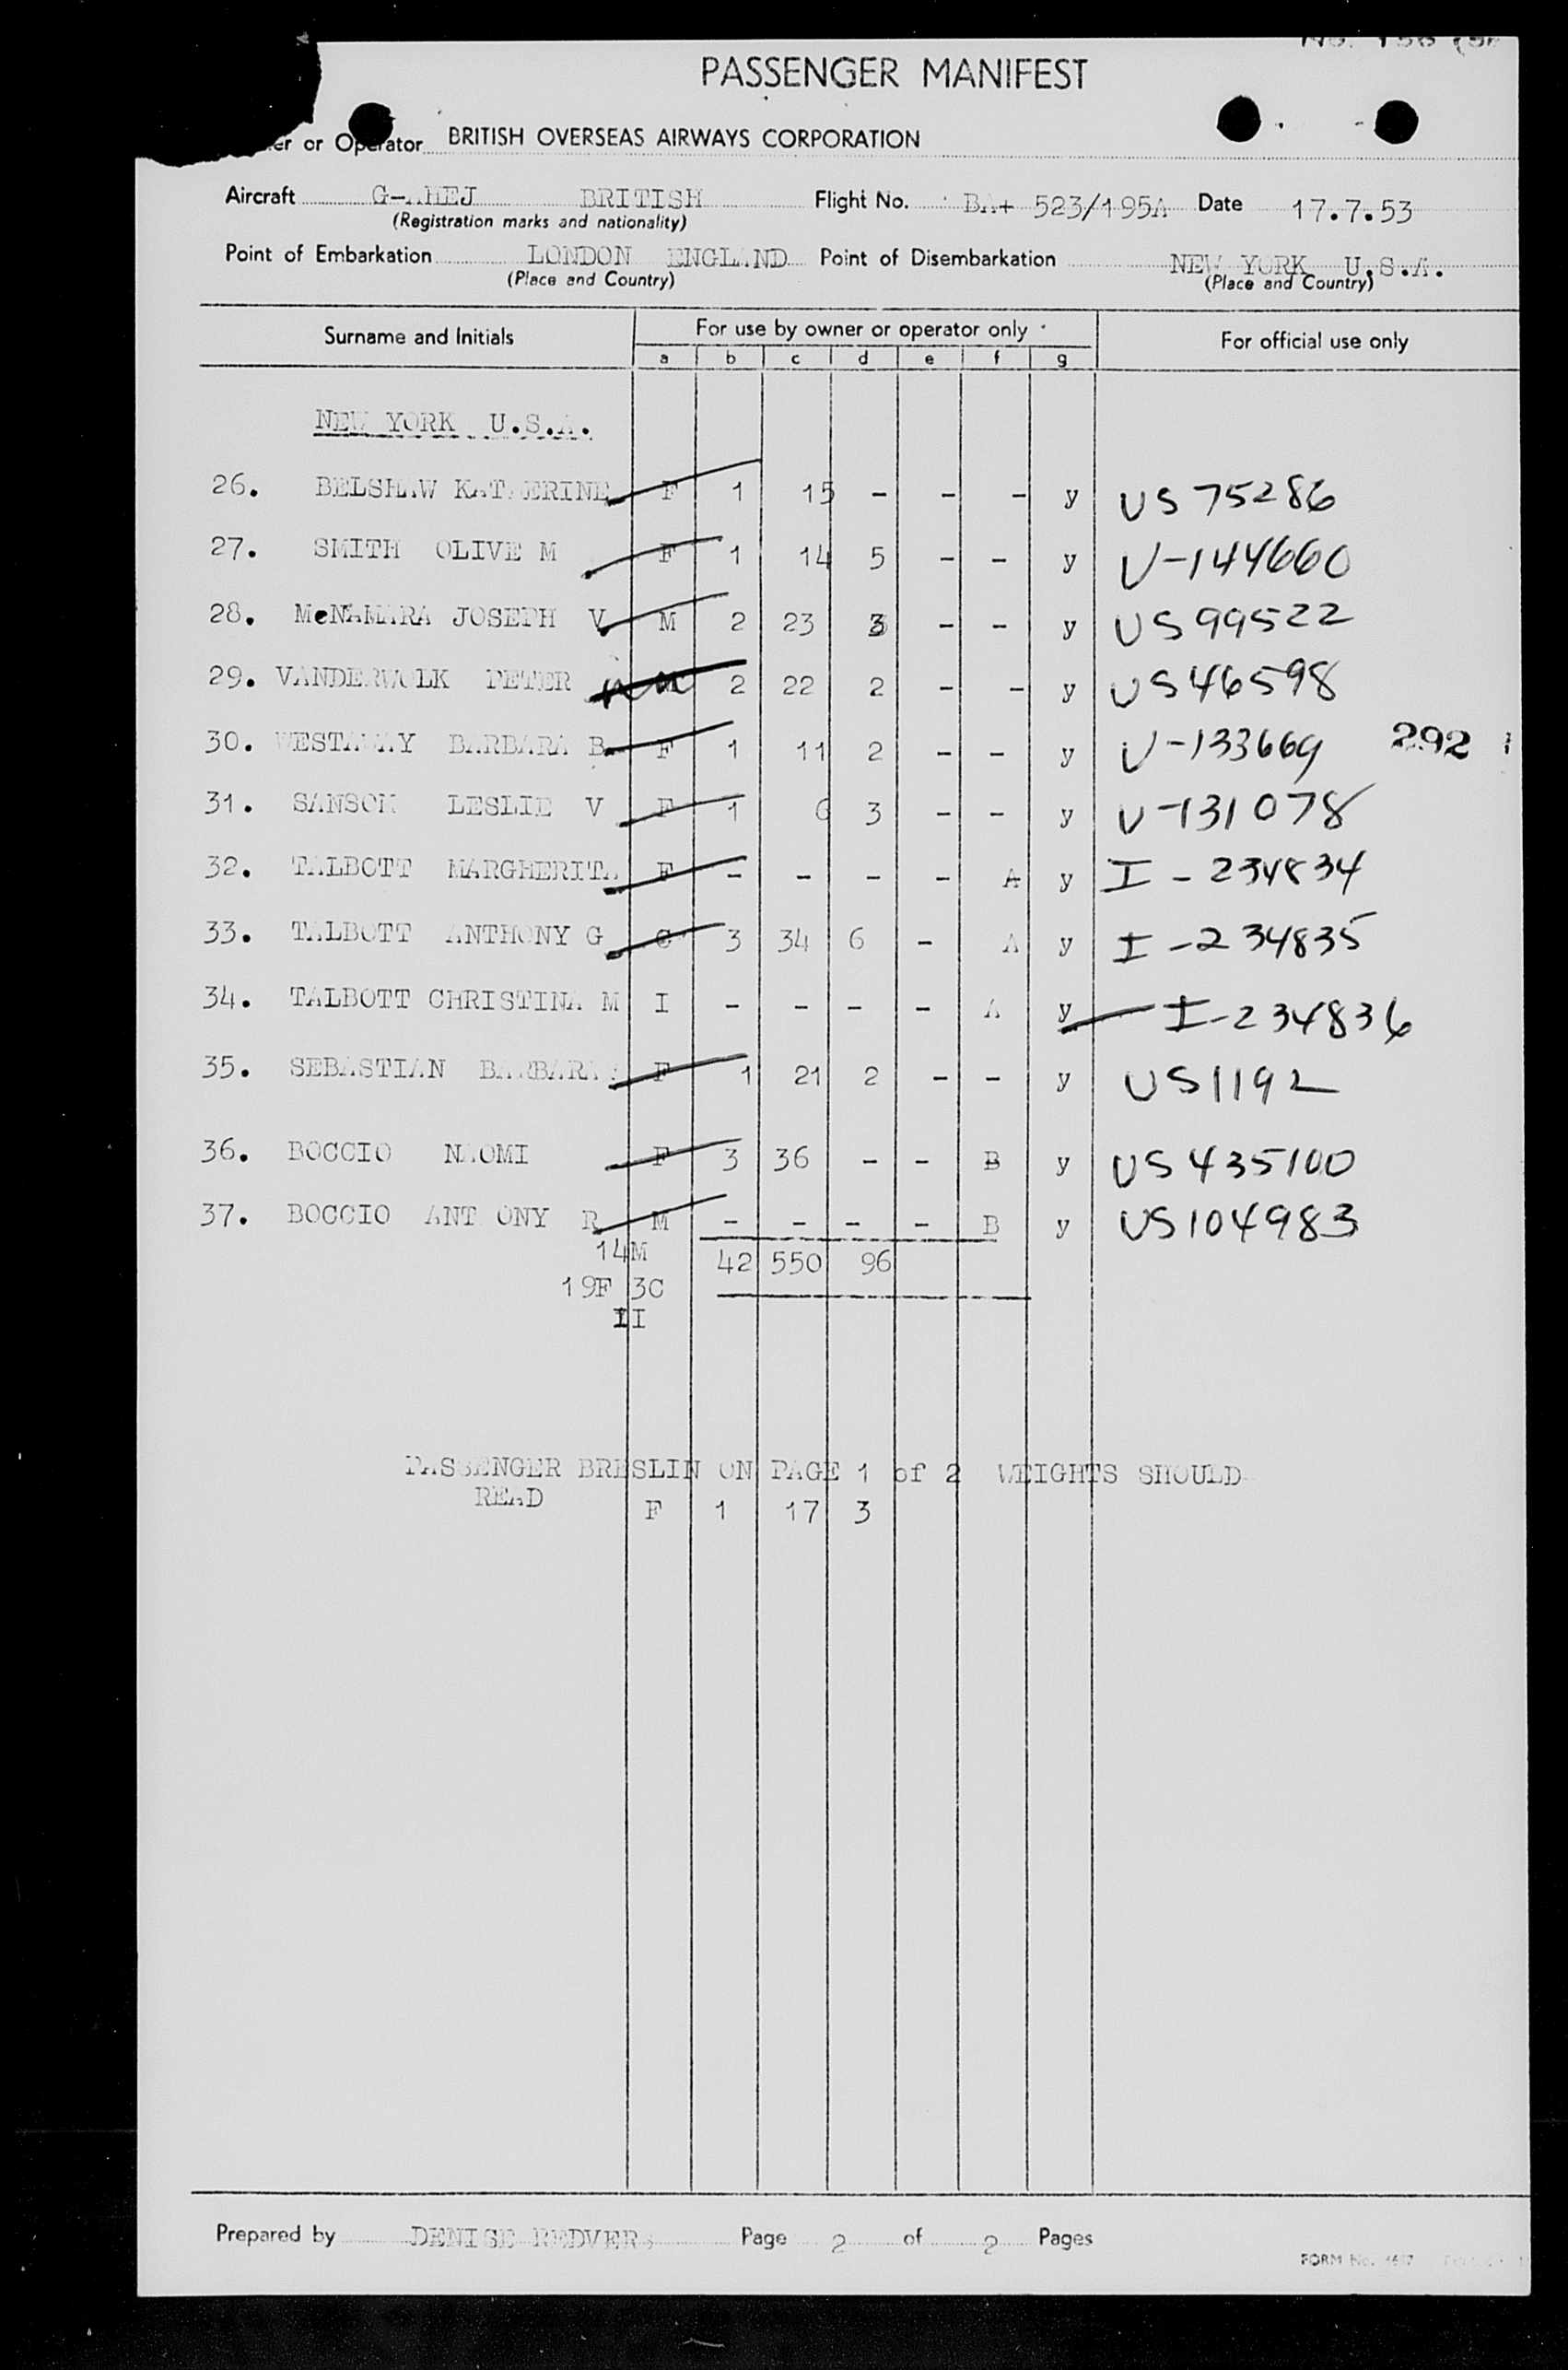 PASSENGER MANIFEST
or Operator BRITISH OVERSEAS AIRWAYS CORPORATION
Aircraft G-AHEJ BRITISH Flight No. BA+ 523/195A Date 17.7.53
(Registration marks and nationality)
Point of Embarkation LONDON ENGLAND Point of Disembarkation NEW YORK U.S.A.
(Place and Country) (Place and Country)
Surname and Initials For use by owner or operator only For official use only
a b c d e f g
NEW YORK U.S.A.
26. BELSHAW KATHERINE F 1 15 - - - y US 75286
27. SMITH OLIVE M F 1 14 5 - - y V-144660
28. McNAMARA JOSEPH V M 2 23 3 - - y US 99522
29. VANDERWOLK PETER M 2 22 2 - - y US 46598
30. WESTAWAY BARBARA B F 1 11 2 - - y V-133669 292
31. SANSOM LESLIE V F 1 6 3 - - y V-131078
32. TALBOTT MARGHERITA F - - - - A y I-234834
33. TALBOTT ANTHONY G C 3 34 6 - A y I-234835
34. TALBOTT CHRISTINA M I - - - - A y I-234836
35. SEBASTIAN BARBARA F 1 21 2 - - y US 1192
36. BOCCIO NAOMI F 3 36 - - B y US 435100
37. BOCCIO ANTHONY R M - - - - B y US 104983
14M 42 550 96
19F 3C
II
PASSENGER BRESLIN ON PAGE 1 of 2 WEIGHTS SHOULD
READ F 1 17 3
Prepared by DENISE REDVERS Page 2 of 2 Pages
FORM No.